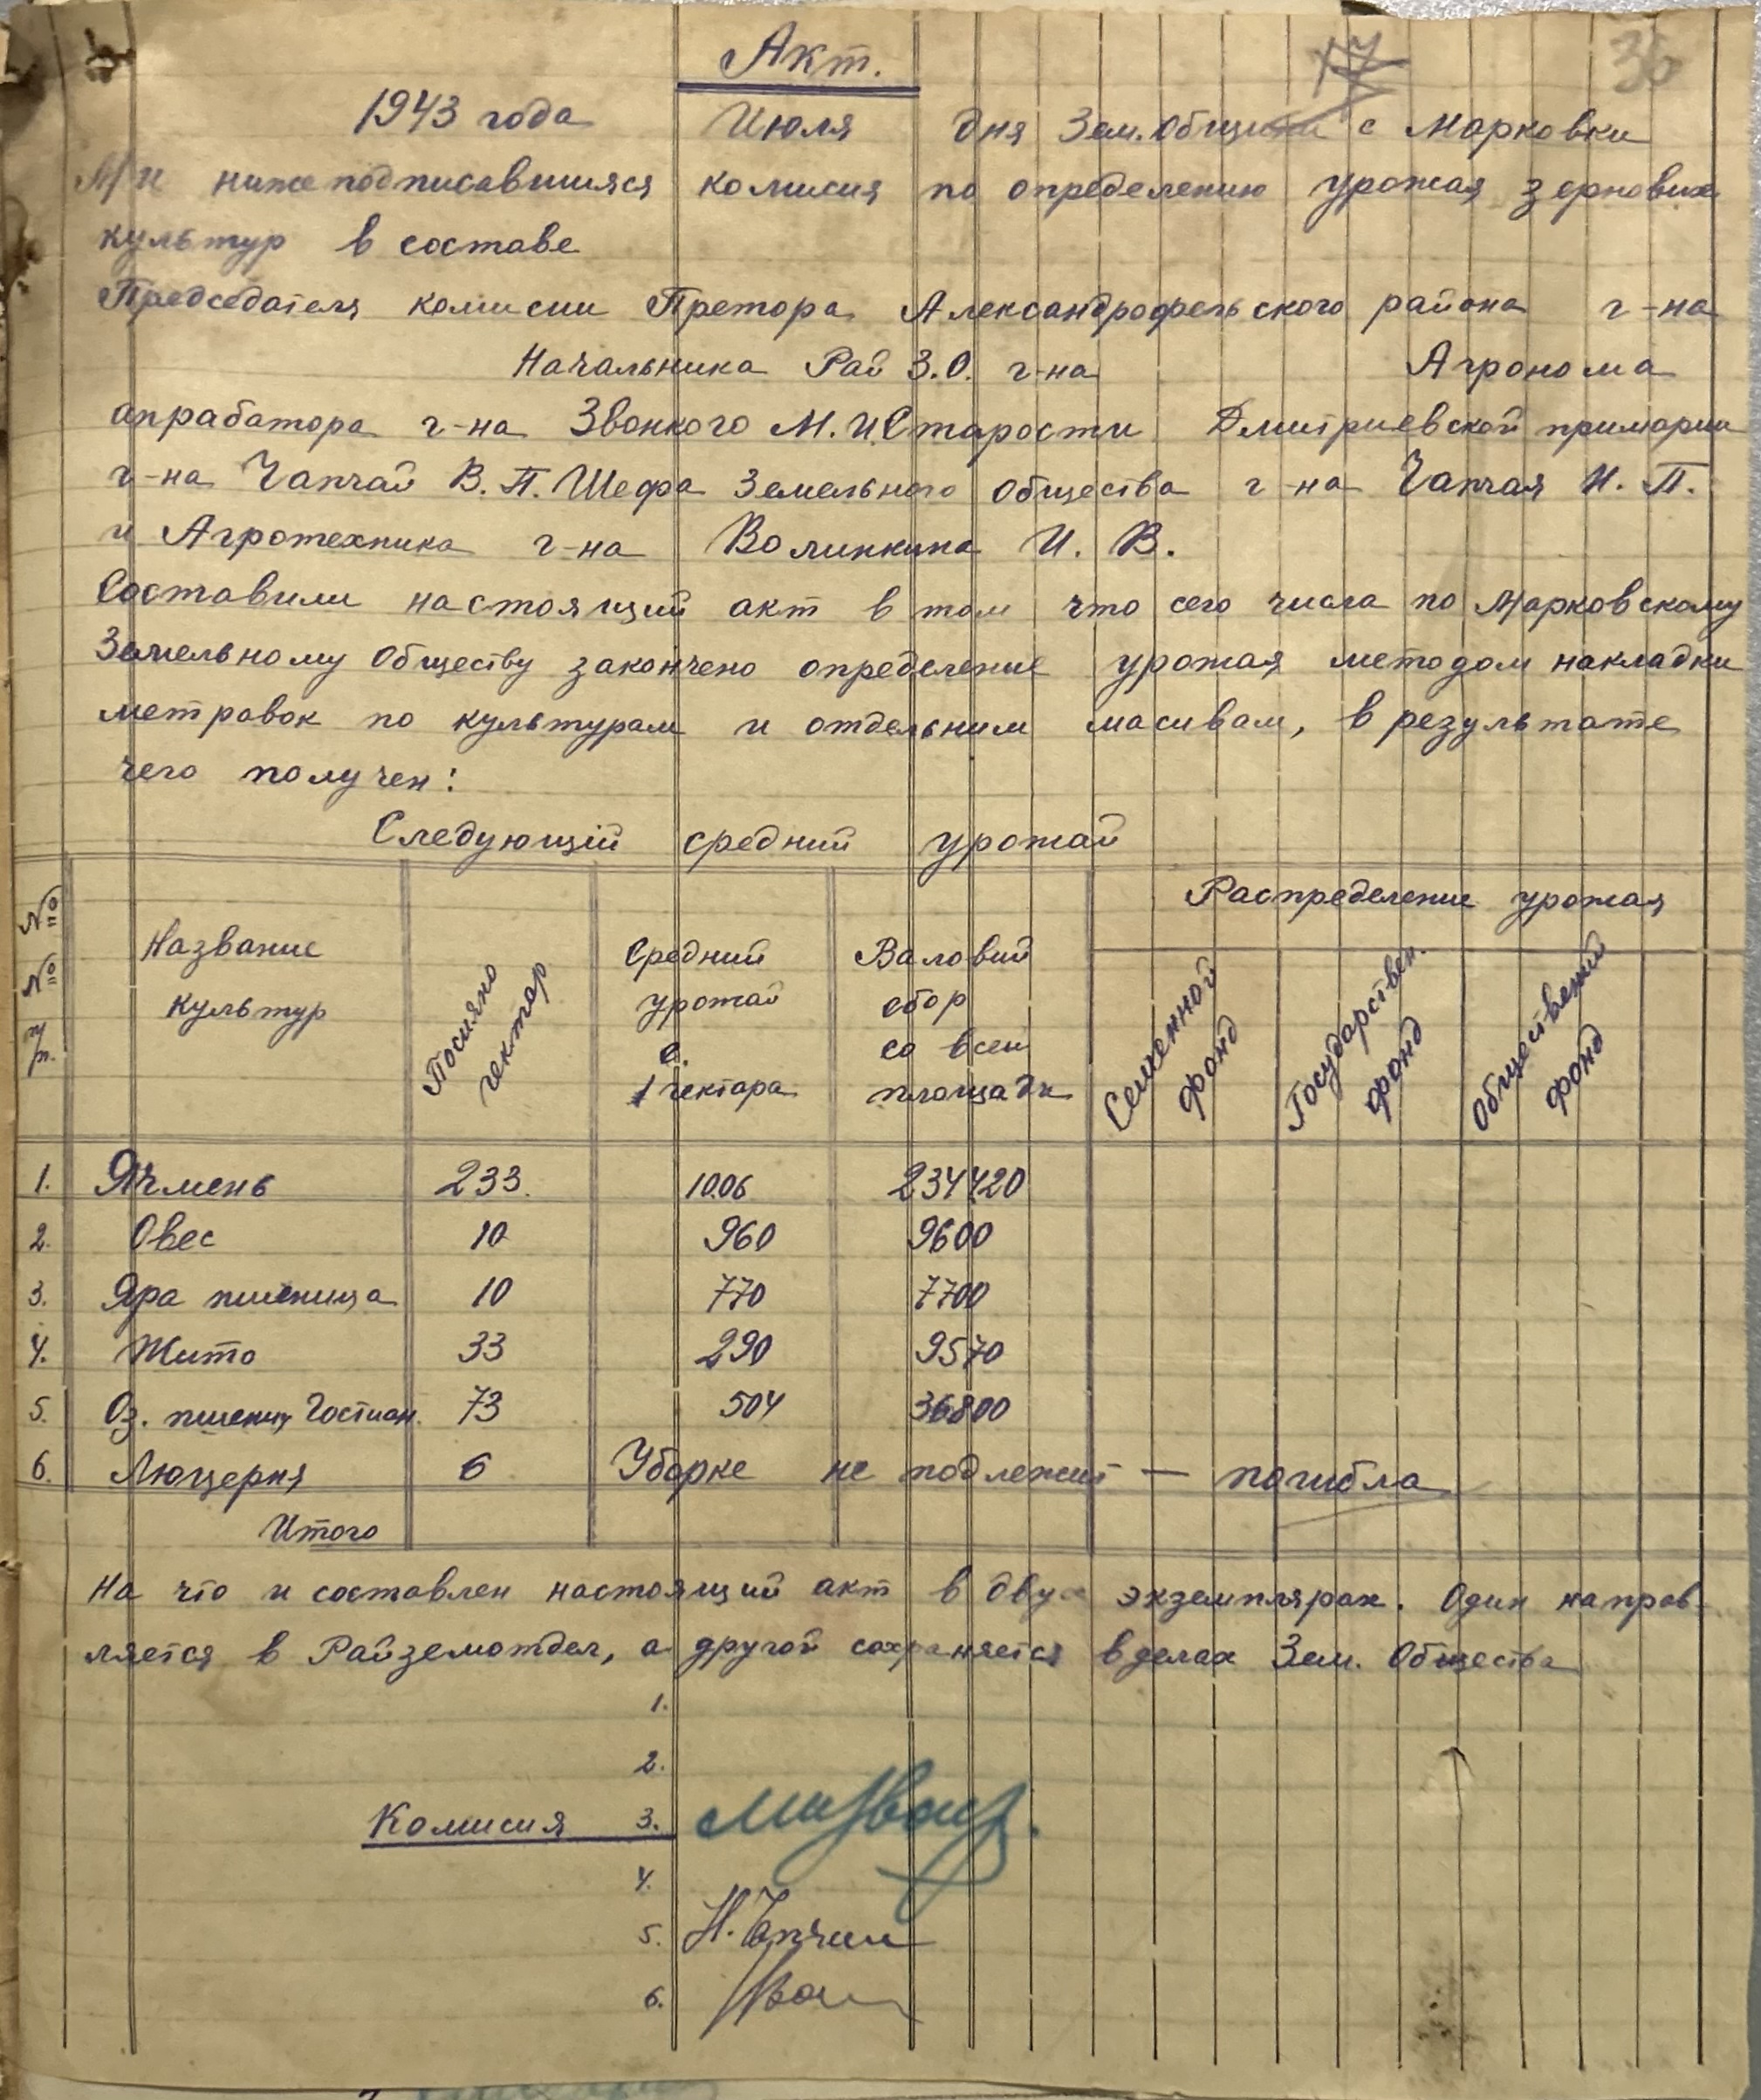 36
Акт.
1943 года Июля дня Зем. Общини с Марковки
Ми нижеподписавшияся комисия по определению урожая зернових
культур в составе
Председателя комисии Претора Александрофельского района г-на
Начальника Рай З.О. г-на Агронома
апрабатора г-на Звонкого М.И. Старости Дмитриевской примарии
г-на Чапчай В.П. Шефа Земельного Общества г-на Чапчая Н.П.
и Агротехника г-на Волинкина И.В.
Составили настоящий акт в том что сего числа по Марковскому
Земельному Обществу закончено определение урожая методом накладки
метровок по культурам и отдельним масивам, в результате
чего получен:
Следующій средний урожай
№ № п/п. Название культур Посияно гектар Средний урожай с 1 гектара Валовий сбор со всей площади Распределение урожая
Семенной фонд Государствен. фонд Общественний фонд
1. Ячмень 233. 10.06 234420
2. Овес 10 960 9600
3. Яра пшеница 10 770 7700
4. Жито 33 290 9570
5. Оз. пшениц Гостиан. 73 504 36800
6. Люцерня 6 Уборке не подлежит — погибла
Итого
На что и составлен настоящий акт в двух экземплярах. Один направ-
ляется в Райземотдел, а другой сохраняется в делах Зем. Общества
1.
2.
Комисия 3.
4.
5. Н. Чапчай
6.